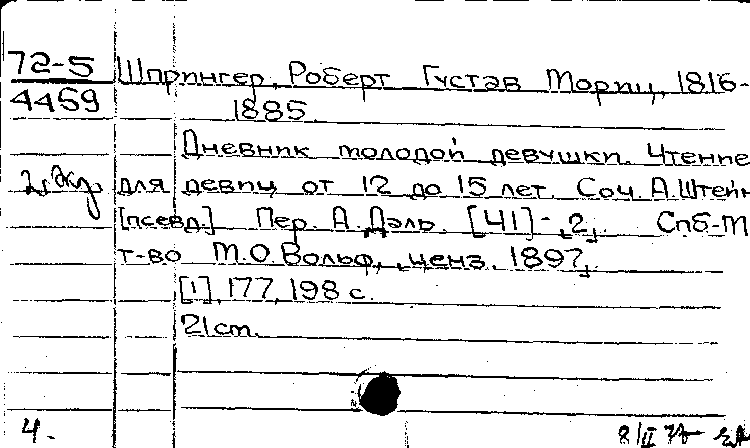 72-5 Шпрингер, Роберт Густав Мориц, 1816-
4459 1885.
Дневник молодой девушки. Чтение
2 экз. для девиц от 12 до 15 лет. Соч. А.Штейн
[псевд.] Пер. А. Дэль. [Ч1]-„2„. Спб-М
т-во М.О.Вольф, „ценз. 1897„.
[1], 177, 198 с.
21 cm.
4. 8/II